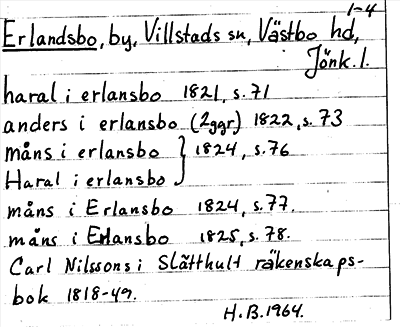 1-4
Erlandsbo, by, Villstads sn, Västbo hd,
Jönk. l.
haral i erlansbo 1821, s. 71
anders i erlansbo (2ggr) 1822, s. 73
måns i erlansbo } 1824, s. 76
Haral i erlansbo
måns i Erlansbo 1824, s. 77.
måns i Erlansbo 1825, s. 78.
Carl Nilssons i Slätthult räkenskaps-
bok 1818-49.
H.B. 1964.